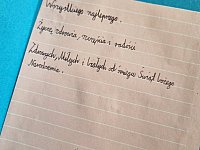 Wszystkiego najlepszego.
Życzę zdrowia, szczęścia i radości
Zdrowych, Miłych i białych od śniegu Świąt Bożego
Narodzenia.